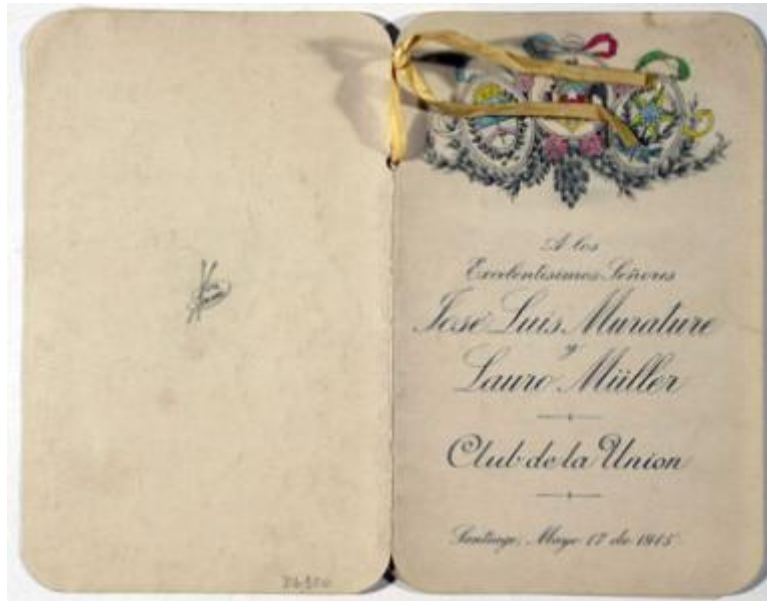 A los
Excelentisimos Señores
Jose Luis Murature
y
Lauro Müller
Club de la Union
Santiago, Mayo 17 de 1915